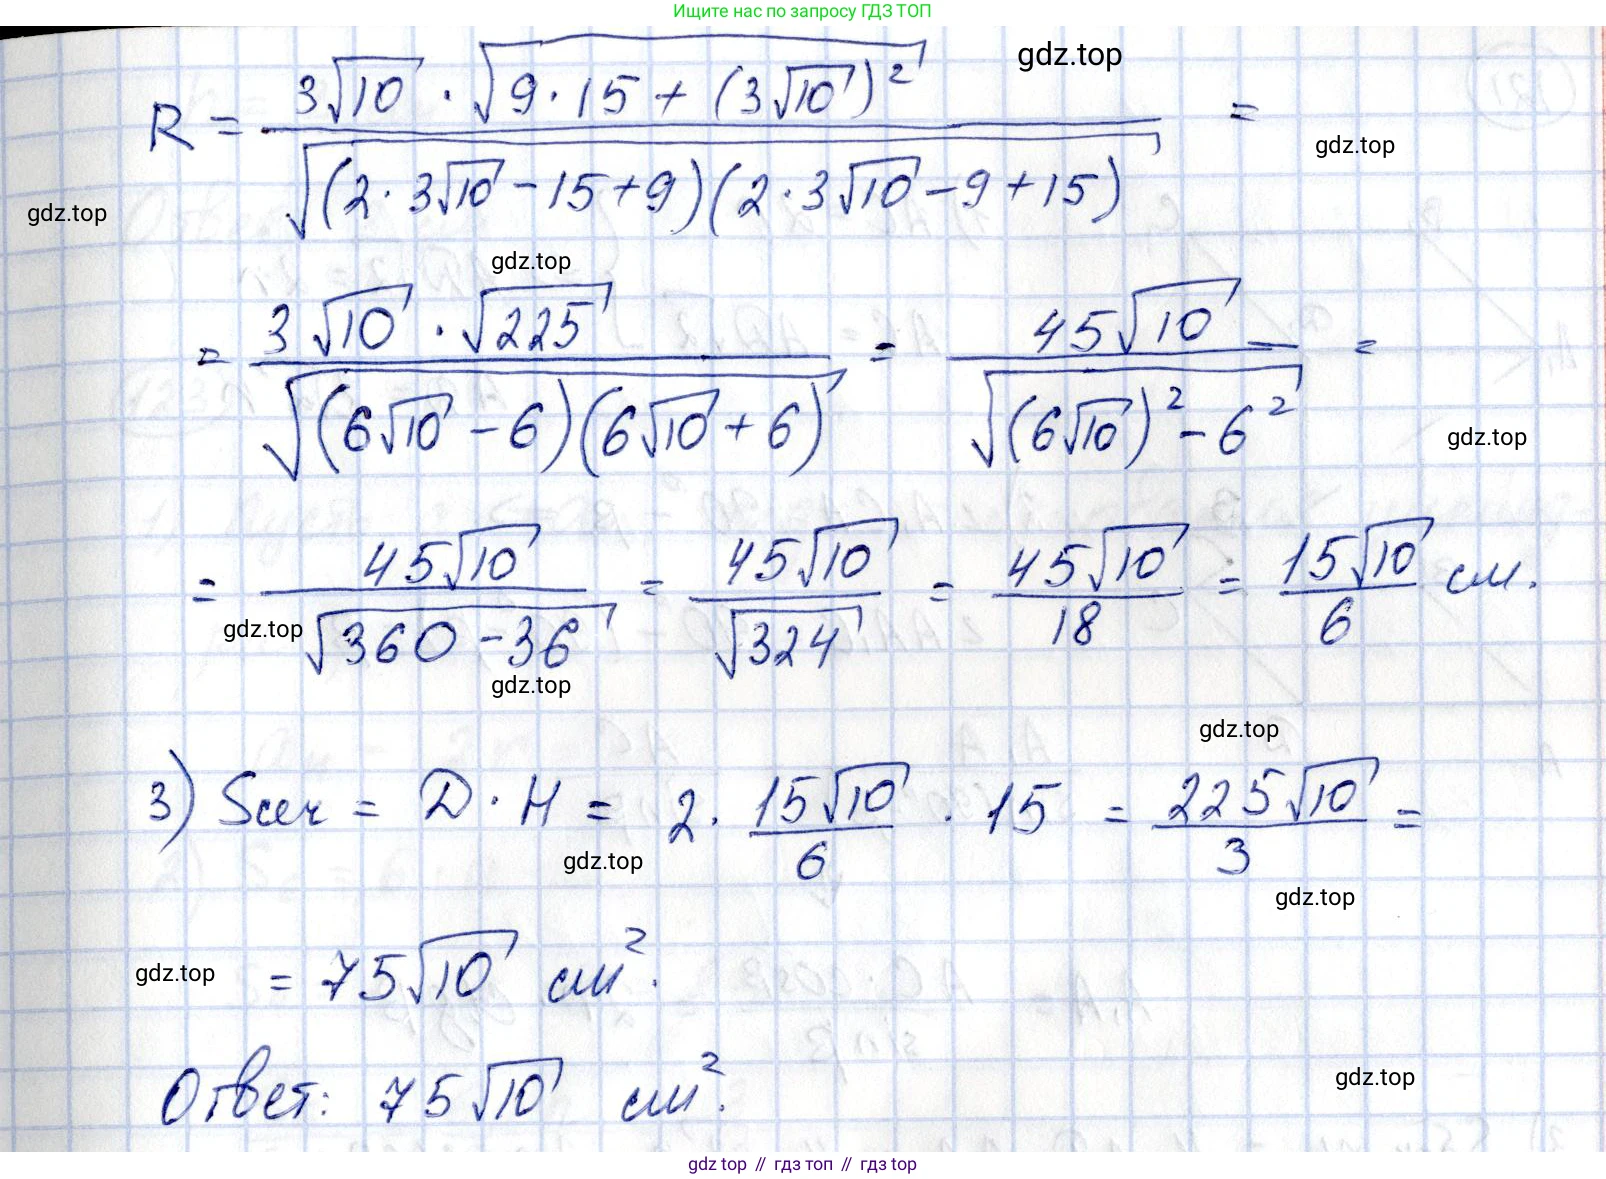 Ищите нас по запросу ГДЗ ТОП
gdz.top
R = (3√10 · √(9 · 15 + (3√10)²)) / √((2 · 3√10 - 15 + 9)(2 · 3√10 - 9 + 15)) =
gdz.top
gdz.top
gdz.top
= (3√10 · √225) / √((6√10 - 6)(6√10 + 6)) = 45√10 / √((6√10)² - 6²) =
gdz.top
= 45√10 / √(360 - 36) = 45√10 / √324 = 45√10 / 18 = 15√10 / 6 см.
gdz.top
gdz.top
gdz.top
3) Sсеч = D · H = 2 · 15√10 / 6 · 15 = 225√10 / 3 =
gdz.top
gdz.top
= 75√10 см².
gdz.top
Ответ: 75√10 см².
gdz.top
gdz top // гдз топ // gdz top